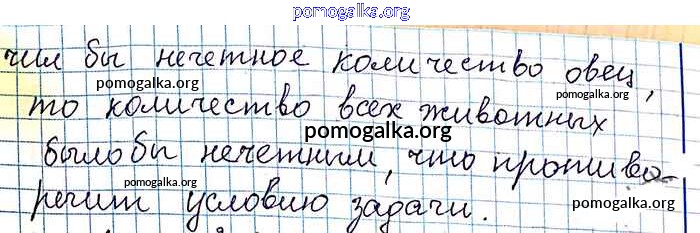 pomogalka.org
чил бы нечетное количество овец,
pomogalka.org pomogalka.org
то количество всех животных
pomogalka.org
было бы нечетным, что противо-
pomogalka.org pomogalka.org
речит условию задачи.